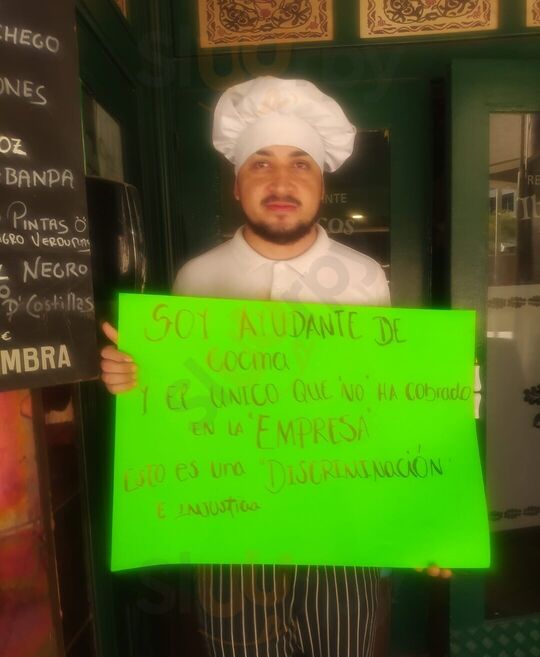 CHEGO
ONES
OZ
BANDA
PINTAS
NEGRO
D' Costillas
€
MBRA
SOY AYUDANTE DE
COCINA
Y EL UNICO QUE "NO" HA COBRADO
EN LA "EMPRESA"
ESTO ES UNA "DISCRIMINACIÓN"
E INJUSTICIA